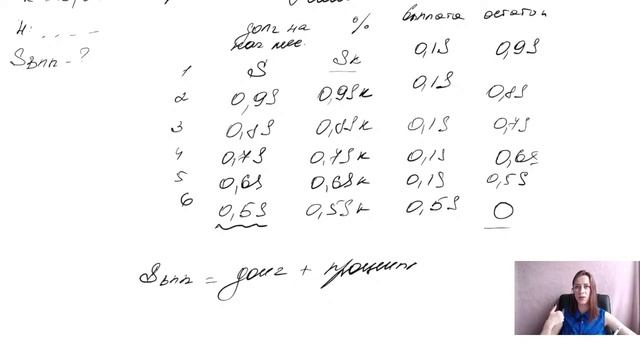 долг на % выплата остаток
нач мес.
H: - - - -
Sвып - ?
1 S Sк 0,1S 0,9S
2 0,9S 0,9Sк 0,1S 0,8S
3 0,8S 0,8Sк 0,1S 0,7S
4 0,7S 0,7Sк 0,1S 0,6S
5 0,6S 0,6Sк 0,1S 0,5S
6 0,5S 0,5Sк 0,5S 0
Sвып = долг + проценты